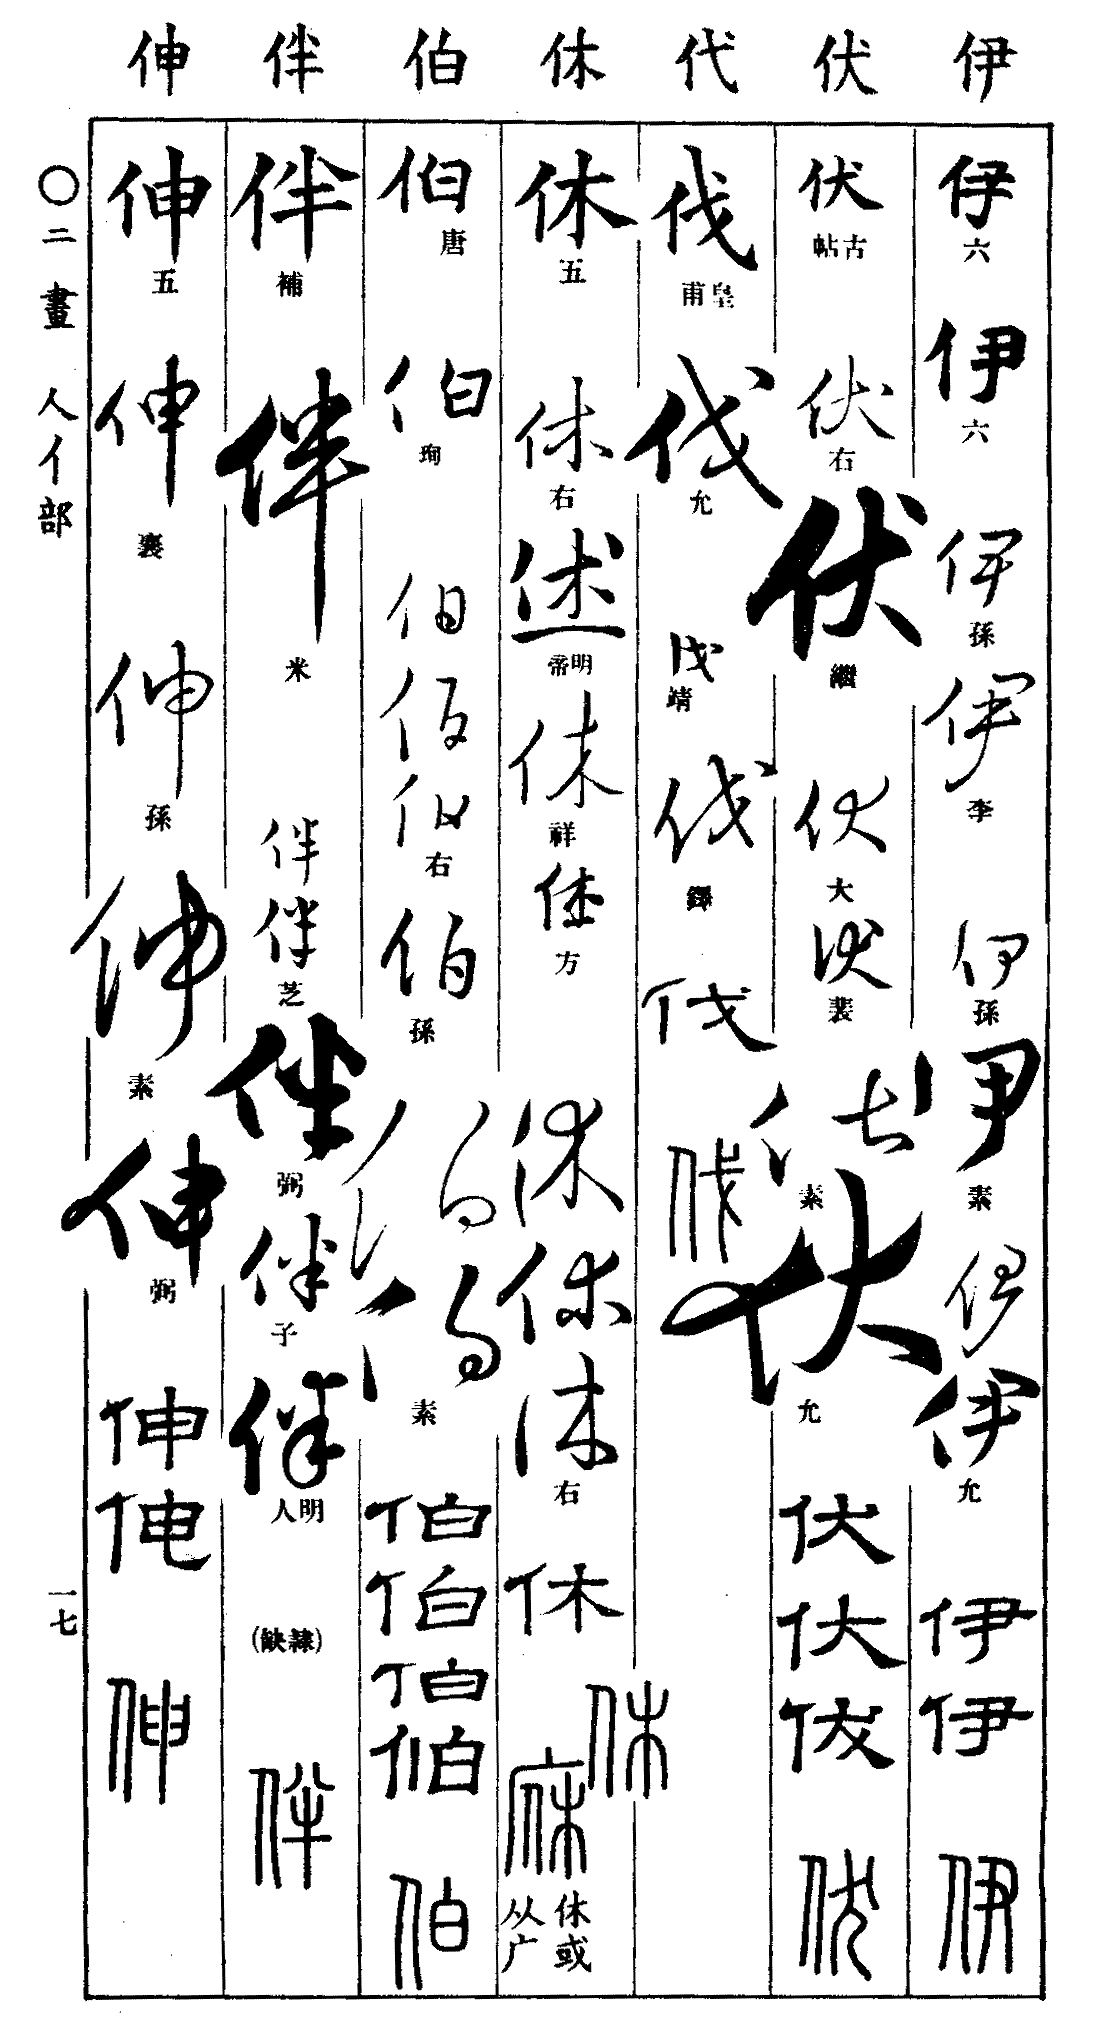 伊 伏 代 休 伯 伴 伸
伊 六
伊 六
伊 孫
伊 李
伊 孫
伊 素
伊
伊 允
伊
伊
伊
伏 古帖
伏 右
伏 繼
伏 大
伏 裴
伏 素
伏 允
伏
伏
伏
伏
伐 皇甫
伐 允
伐 靖
伐 鐸
伐
伐
休 五
休 右
休 明帝
休 祥
休 方
休
休
休 右
休
休
庥 休或从广
伯 唐
伯 珣
伯
伯
伯 右
伯 孫
伯
伯 素
伯
伯
伯
伯
伯
伴 補
伴 米
伴
伴 芝
伴 弼
伴 子
伴 明人
(隸缺)
伴
伸 五
伸 裏
伸 孫
伸 素
伸 弼
伸
伸
伸
〇二畫 人亻部
一七